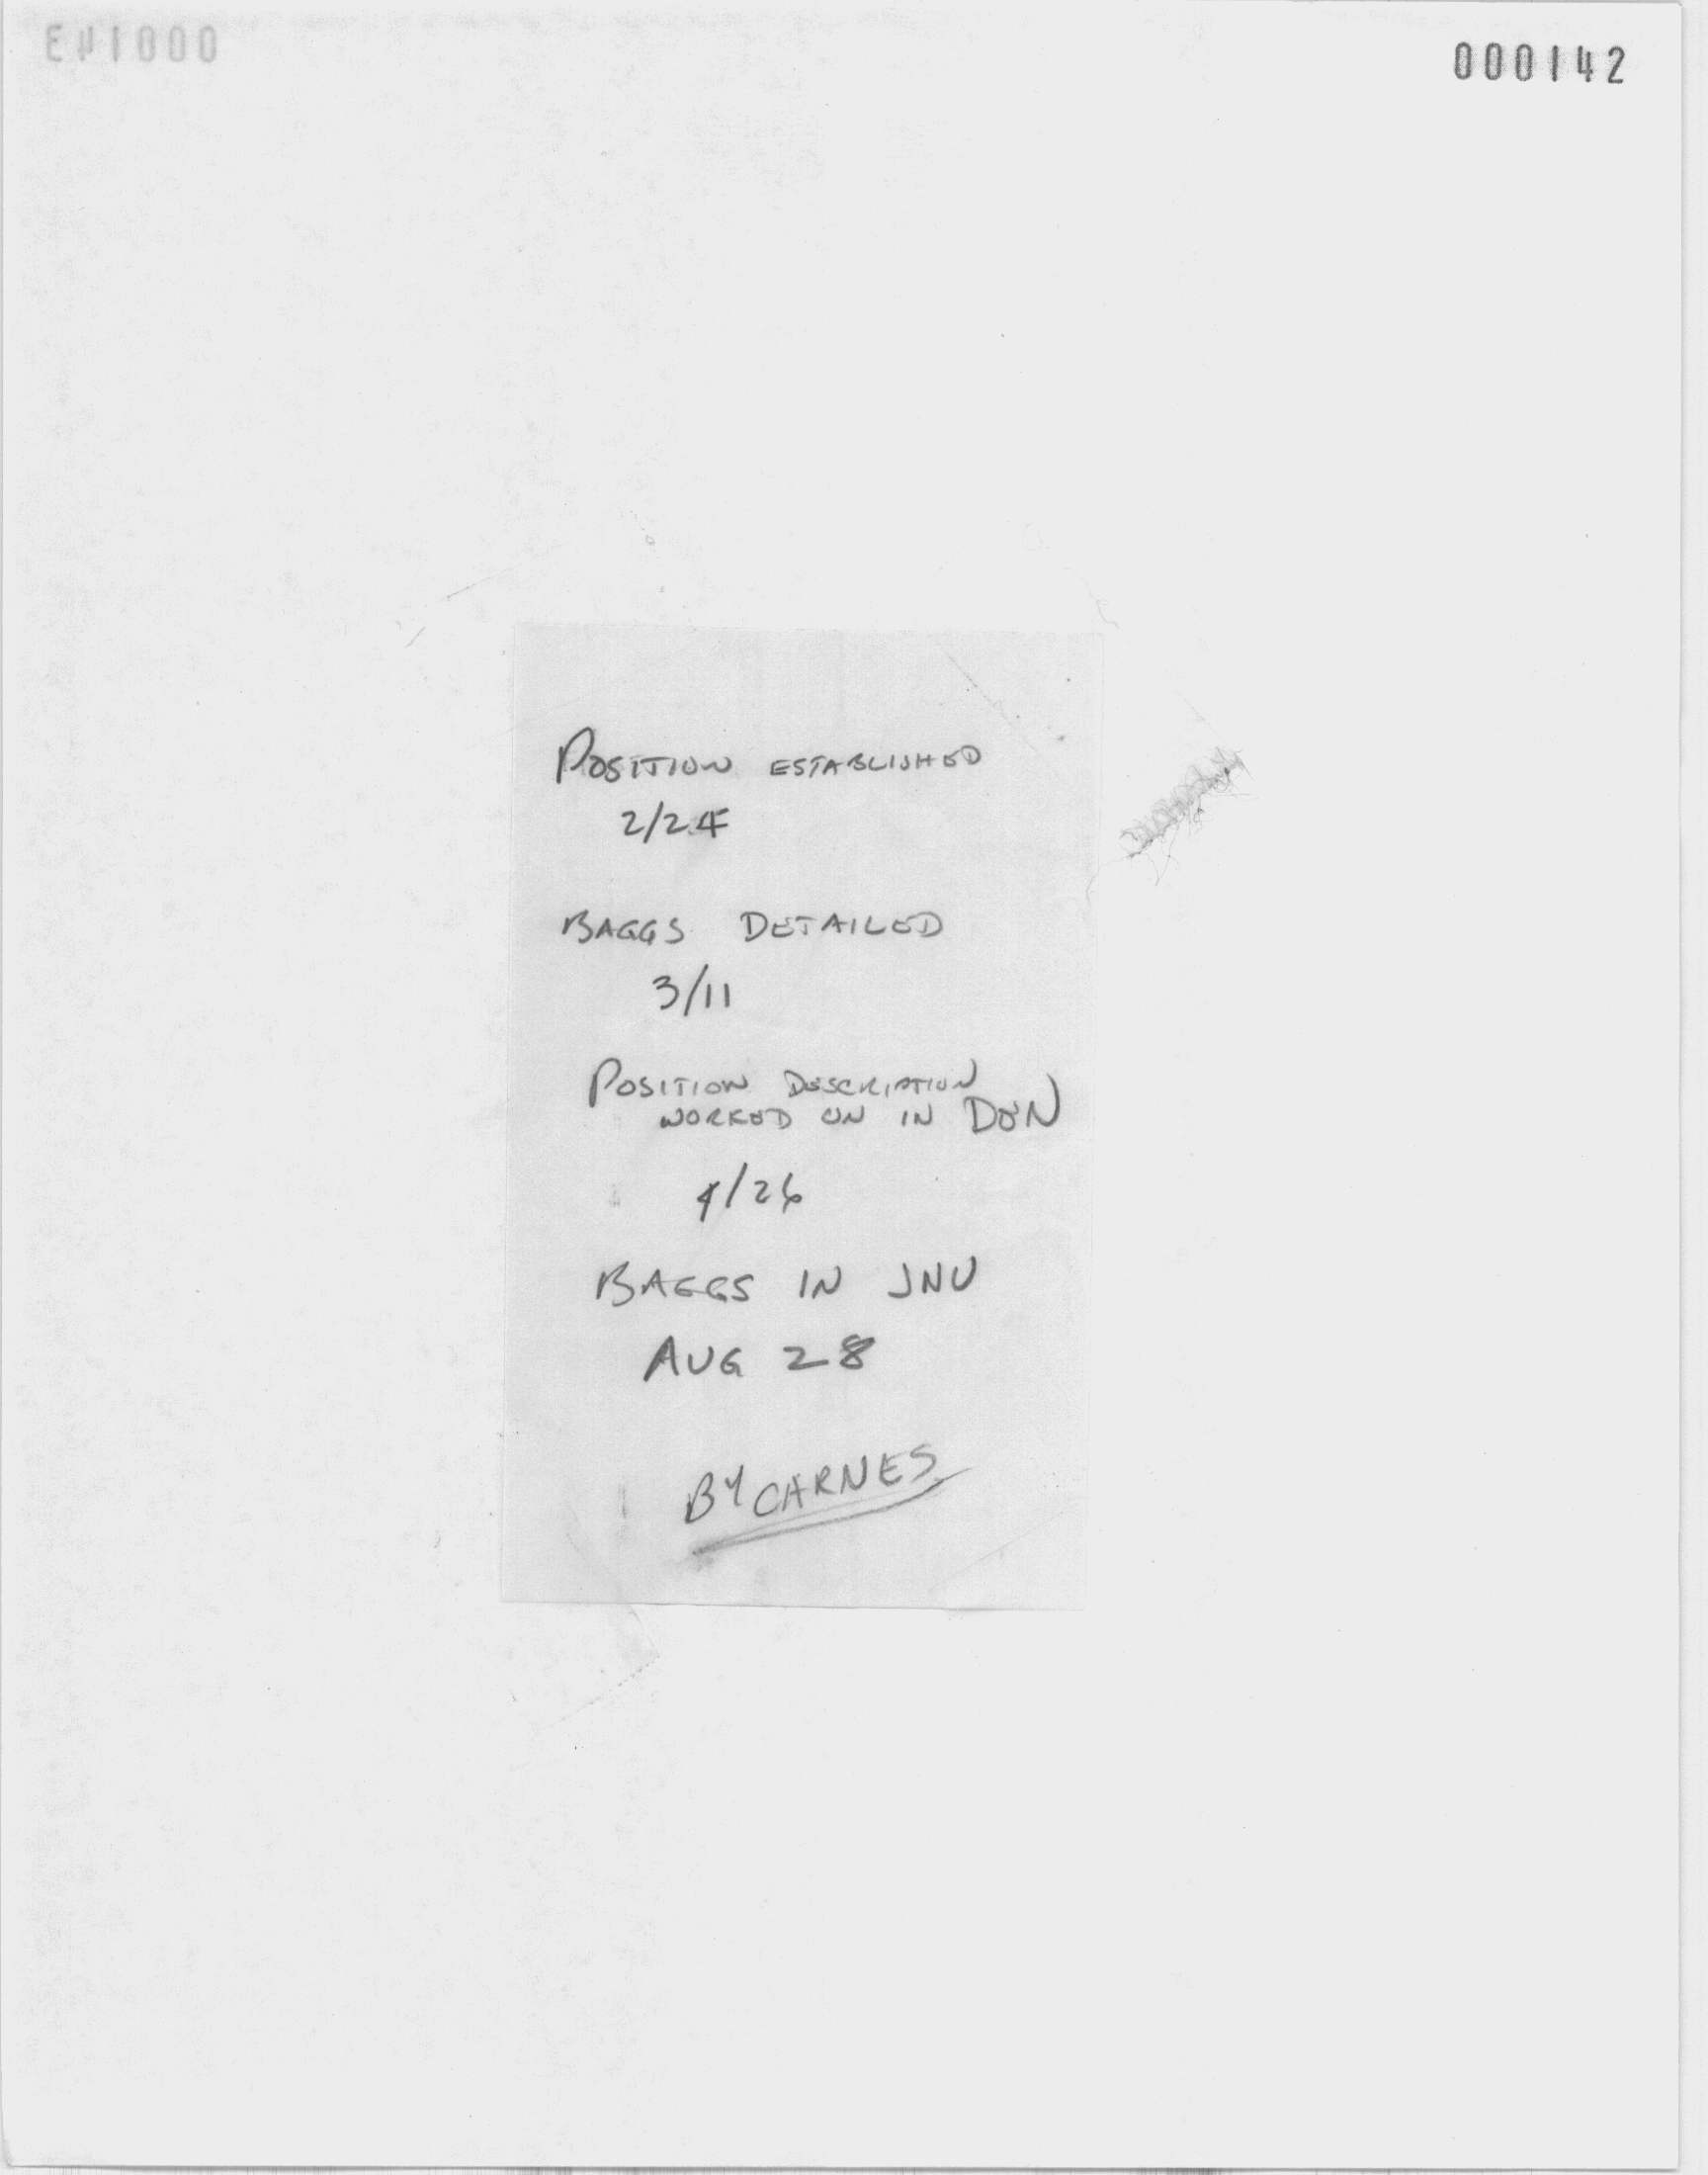 000142
000143
POSITION ESTABLISHED
2/24
BAGGS DETAILED
3/11
POSITION DESCRIPTION
WORKED ON IN DEN
4/26
BAGGS IN JNU
AUG 28
BY CARNES